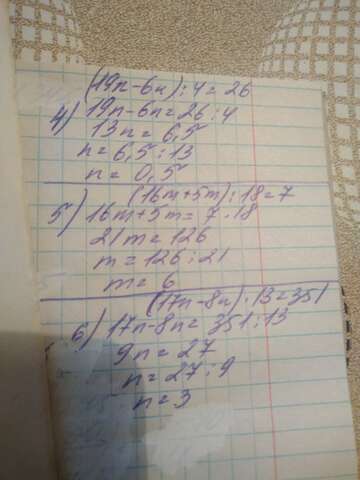 (19n-6n):4=26
4) 19n-6n=26:4
13n=6,5
n=6,5:13
n=0,5
(16m+5m):18=7
5) 16m+5m=7·18
21m=126
m=126:21
m=6
(17n-8n)·13=351
6) 17n-8n=351:13
9n=27
n=27:9
n=3